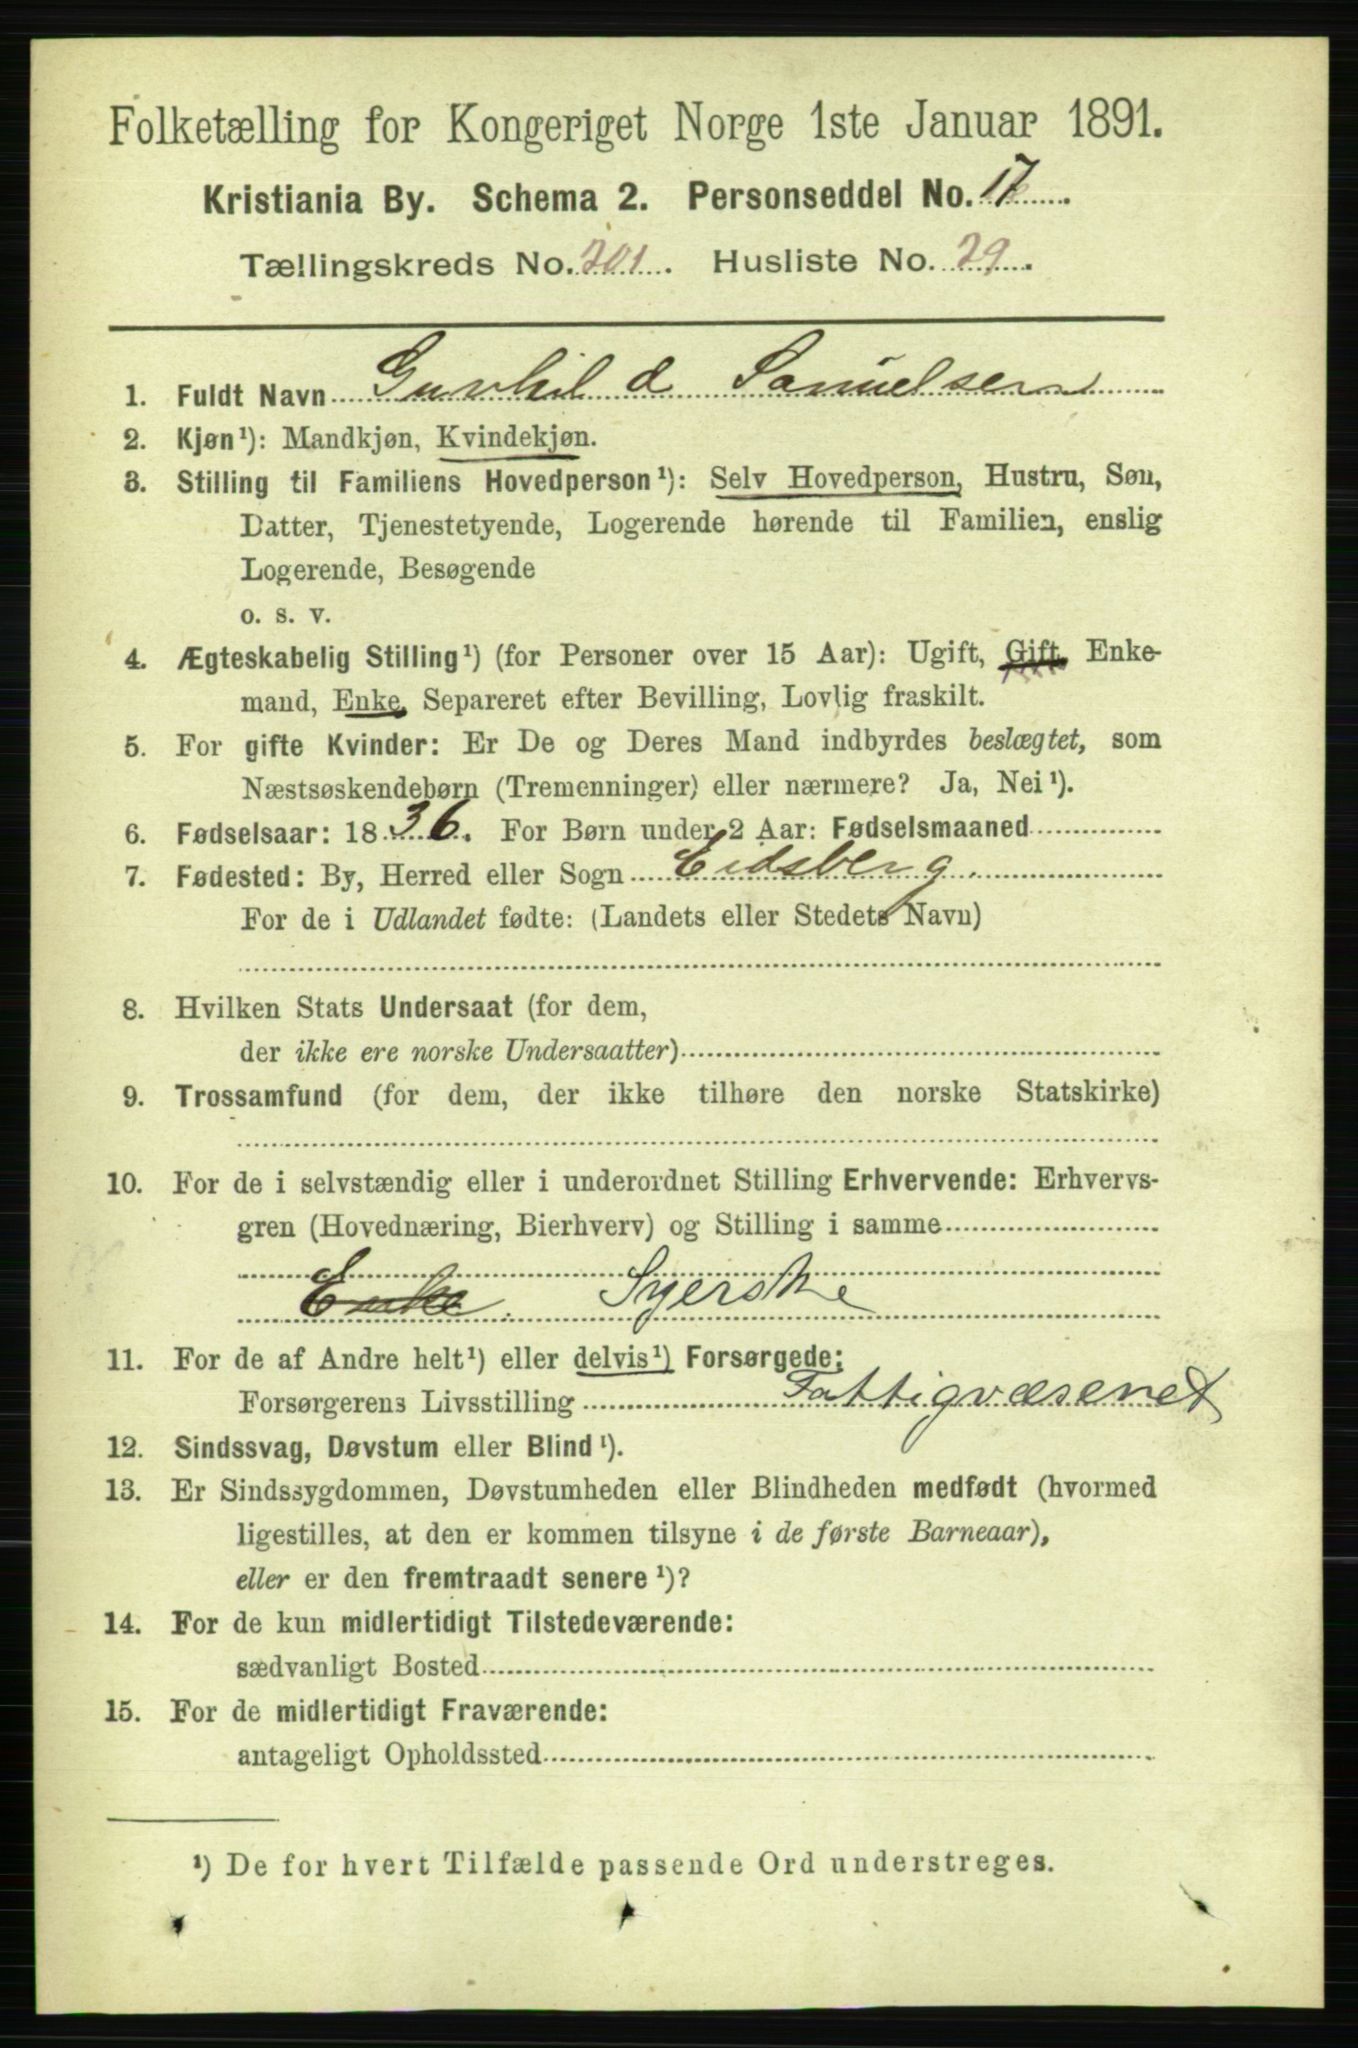 Folketælling for Kongeriget Norge 1ste Januar 1891.
Kristiania By. Schema 2. Personseddel No. 17.
Tællingskreds No. 201. Husliste No. 29.
1. Fuldt Navn Gunhild Samuelsen
2. Kjøn¹): Mandkjøn, Kvindekjøn.
3. Stilling til Familiens Hovedperson¹): Selv Hovedperson, Hustru, Søn,
Datter, Tjenestetyende, Logerende hørende til Familien, enslig
Logerende, Besøgende
o. s. v.
4. Ægteskabelig Stilling¹) (for Personer over 15 Aar): Ugift, Gift, Enke-
mand, Enke, Separeret efter Bevilling, Lovlig fraskilt.
5. For gifte Kvinder: Er De og Deres Mand indbyrdes beslægtet, som
Næstsøskendebørn (Tremenninger) eller nærmere? Ja, Nei¹).
6. Fødselsaar: 1836. For Børn under 2 Aar: Fødselsmaaned
7. Fødested: By, Herred eller Sogn Eidsberg.
For de i Udlandet fødte: (Landets eller Stedets Navn)
8. Hvilken Stats Undersaat (for dem,
der ikke ere norske Undersaatter)
9. Trossamfund (for dem, der ikke tilhøre den norske Statskirke)
10. For de i selvstændig eller i underordnet Stilling Erhvervende: Erhvervs-
gren (Hovednæring, Bierhverv) og Stilling i samme
Enke. Syerske
11. For de af Andre helt¹) eller delvis¹) Forsørgede:
Forsørgerens Livsstilling Fattigvæsenet
12. Sindssvag, Døvstum eller Blind¹).
13. Er Sindssygdommen, Døvstumheden eller Blindheden medfødt (hvormed
ligestilles, at den er kommen tilsyne i de første Barneaar),
eller er den fremtraadt senere¹)?
14. For de kun midlertidigt Tilstedeværende:
sædvanligt Bosted
15. For de midlertidigt Fraværende:
antageligt Opholdssted
¹) De for hvert Tilfælde passende Ord understreges.